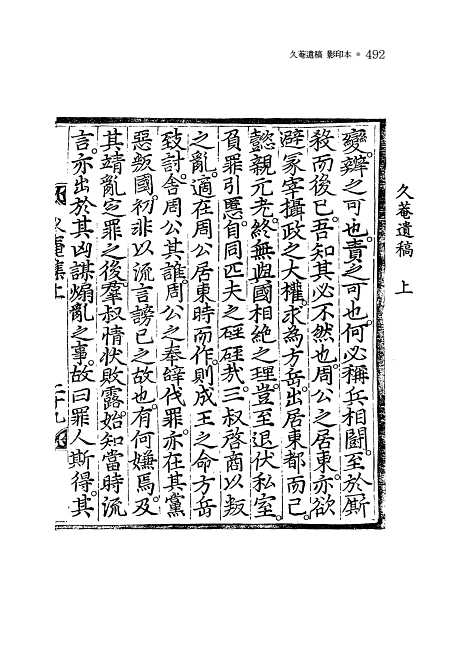 久菴遺稿 影印本 ● 492
久菴遺稿 上
變。辨之可也。責之可也。何必稱兵相鬪。至於斯
殺而後已。吾知其必不然也。周公之居東。亦欲
避冢宰攝政之大權。求為方岳。出居東都而已。
懿親元老。終無與國相絶之理。豈至退伏私室。
負罪引慝。自同匹夫之硜硜哉。三叔啓商以叛
之亂。適在周公居東時而作。則成王之命方岳
致討。舍周公其誰。周公之奉辭代罪。亦在其黨
惡叛國。初非以流言謗已之故也。有何嫌焉。及
其靖亂㝎罪之後。羣叔情狀敗露。始知當時流
言。亦出於其凶謀煽亂之事。故曰罪人斯得。其
久菴集上
二十九